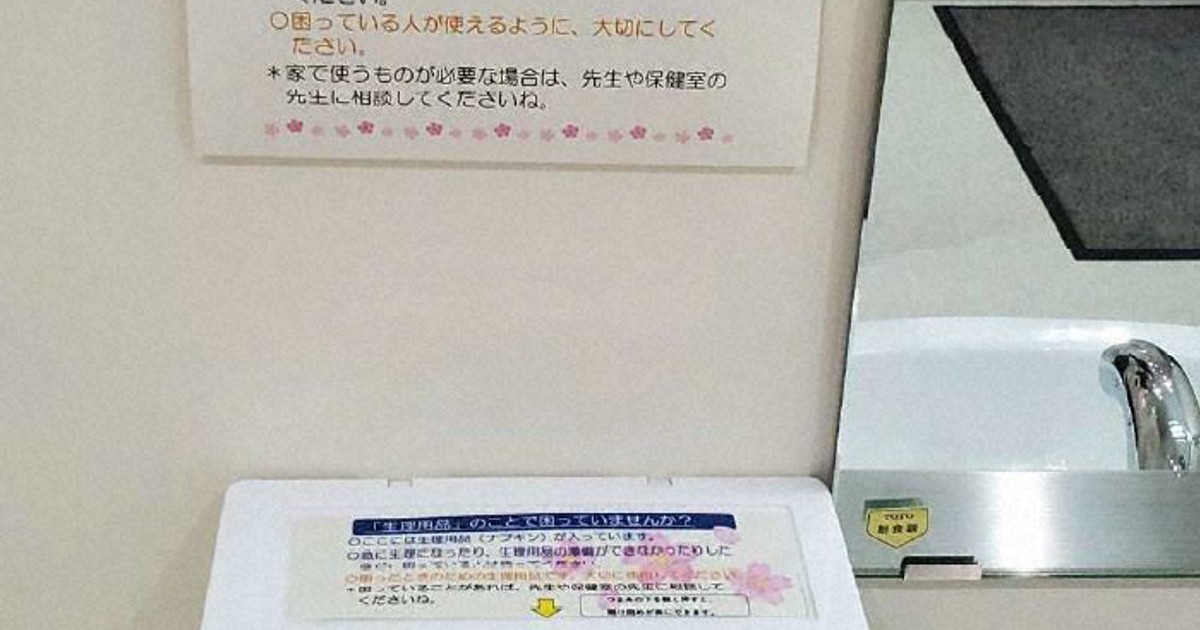 ください。
○困っている人が使えるように、大切にしてく
ださい。
＊家で使うものが必要な場合は、先生や保健室の
先生に相談してくださいね。
「生理用品」のことで困っていませんか？
○ここには生理用品（ナプキン）が入っています。
○急に生理になったり、生理用品の準備ができなかったりした
○困ったときのための生理用品です。大切に使用してください。
＊困っていることがあれば、先生や保健室の先生に相談して
くださいね。
つまみの下を軽く押すと、
開け閉めが楽にできます。
TOTO
耐食鏡